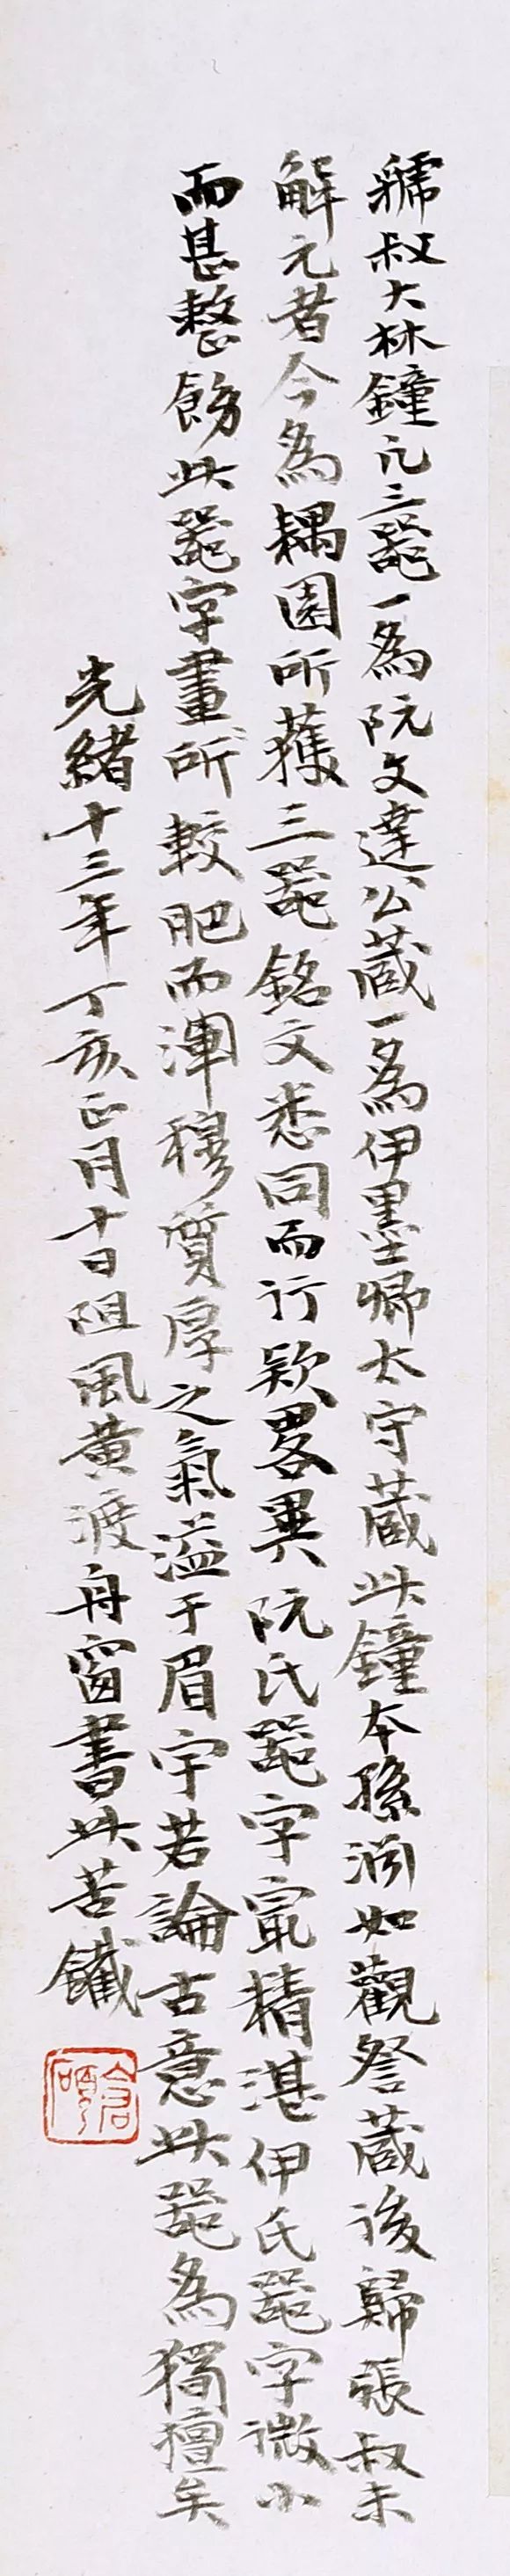 虢叔大林鐘凡三器一為阮文達公藏一為伊墨卿太守藏此鐘本孫淵如觀詧藏後歸張叔未
解元者今為耦園所獲三器銘文悉同而行款畧異阮氏器字冣精湛伊氏器字微小
而甚整飭此器字畫所較肥而渾穆質厚之氣溢于眉宇若論古意此器為獨擅矣
光緒十三年丁亥正月十日阻風黃渡舟窗書此苦鐵
倉碩